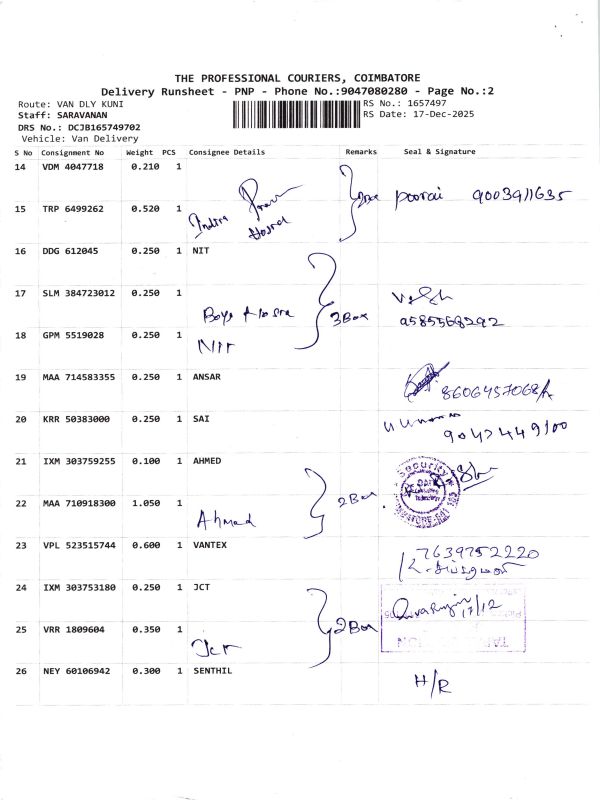 THE PROFESSIONAL COURIERS, COIMBATORE
Delivery Runsheet - PNP - Phone No.:9047080280 - Page No.:2
Route: VAN DLY KUNI RS No.: 1657497
Staff: SARAVANAN RS Date: 17-Dec-2025
DRS No.: DCJB165749702
Vehicle: Van Delivery
S No Consignment No Weight PCS Consignee Details Remarks Seal & Signature
14 VDM 4047718 0.210 1
poorai 9003911635
15 TRP 6499262 0.520 1
Indira
16 DDG 612045 0.250 1 NIT
17 SLM 384723012 0.250 1
Boys 3 Box 9585568292
18 GPM 5519028 0.250 1
NIT
19 MAA 714583355 0.250 1 ANSAR
8606457068
20 KRR 50383000 0.250 1 SAI
9047449100
21 IXM 303759255 0.100 1 AHMED
Security
22 MAA 710918300 1.050 1
Ahmad 2 Box
23 VPL 523515744 0.600 1 VANTEX
7639752220
24 IXM 303753180 0.250 1 JCT
17/12
25 VRR 1809604 0.350 1
Jct 2 Box
26 NEY 60106942 0.300 1 SENTHIL
H/R